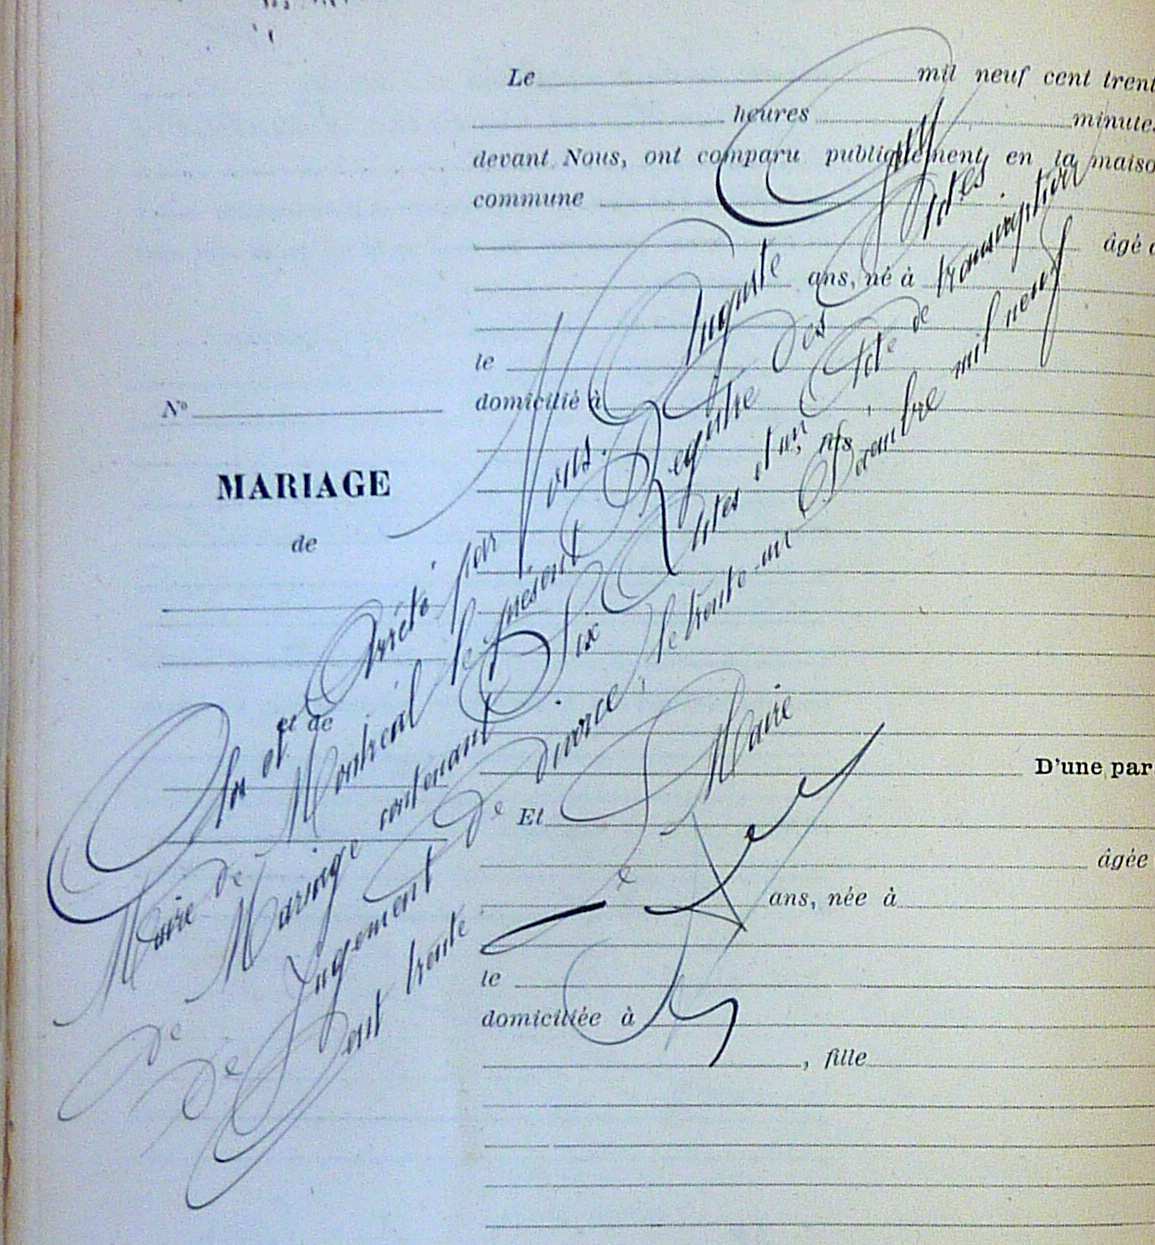 Le mil neuf cent trent
heures minute
devant Nous, ont comparu publiquement en la maiso
commune
âgé d
ans, né à
le
domicilié à
, fils
D'une par
Et
âgée
ans, née à
le
domiciliée à
, fille
N°
MARIAGE
de
et de
Clos et Arrêté par Nous. Auguste
Maire de Montréal le présent Registre des Actes
de Mariage contenant Six Actes et un Acte de transcription
de Jugement de Divorce, le trente-un Décembre mil neuf
Cent trente
Le Maire